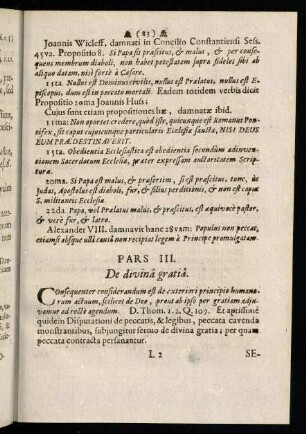 ( 83 )
Joannis Wicleff, damnati in Concilio Constantiensi Sess.
45va. Propositio 8. Si Papa sit præscitus, & malus, & per conse-
quens membrum diaboli, non habet potestatem supra fideles sibi ab
aliquo datam, nisi fortè à Cæsare.
15ta Nullus est Dominus civilis, nullus est Prælatus, nullus est E-
piscopus, dum est in peccato mortali. Eadem totidem verbis dicit
Propositio 20ma Joannis Huss:
Cujus sunt etiam propositiones hæ, damnatæ ibid.
11ma: Non oportet credere, quòd iste, quicunque est Romanus Ponti-
fex, sit caput cujuscunque particularis Ecclesiæ sanctæ, NISI DEUS
EUM PRÆDESTINAVERIT.
15ta. Obedientia Ecclesiastica est obedientia secundum adinven-
tionem Sacerdotum Ecclesiæ, præter expressam auctoritatem Scrip-
turæ.
20ma. Si Papa est malus, & præsertim, si est præscitus, tunc, ut
Judas, Apostolus est diaboli, fur, & filius perditionis, & non est caput
S. militantis Ecclesiæ.
22da. Papa, vel Prælatus malus, & præscitus, est æquivocè pastor,
& verè fur, & latro.
Alexander VIII. damnavit hanc 28vam: Populus non peccat,
etiamsi absque ulla causâ non recipiat legem à Principe promulgatam.
PARS III.
De divinâ gratiâ.
Consequenter considerandum est de exteriori principio humano-
rum actuum, scilicet de Deo, prout ab ipso per gratiam adju-
vamur ad rectè agendum. D. Thom. 1. 2. Q. 109. Et aptissimè
quidem Disputationi de peccatis, & legibus, peccata cavenda
monstrantibus, subjungitur sermo de divina gratia; per quam
peccata contracta persanantur.
L 2 SE-